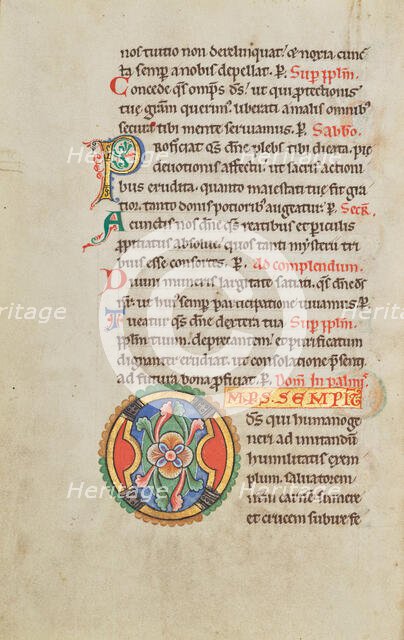 nos tutio non derelinquat / & noxia cunc
ta semp a nobis depellat. P. Sup pplm.
Concede qs omps ds / ut qui protectionis
tuę grām querim', liberati a malis omnib;
secura tibi mente seruamus. P. Sabbō.
Proficiat qs dne plebs tibi dicata, pię
deuotionis affectu / ut sacris actioni
bus erudita, quanto maiestati tuę fit gra
tior, tanto donis potioribus augeatur. P. Secr.
A cunctis nos dne qs reatibus & periculis
ppitiatus absolue / quos tanti mysterii tri
buis esse consortes. P. Ad complendum.
Diuini muneris largitate satiati, qs dne ds
nr / ut hui' semp participatione uiuamus. P.
Tueatur qs dne dextera tua Sup pplm
pplm tuum deprecantem / & purificatum
dignanter erudiat / ut consolatione psenti
ad futura bona pficiat. P. Dom In palmis
O MPS. SEMPIT
ds qui humano ge
neri ad imitandū
humilitatis exem
plum, saluatorem
nrm carnē sumere
et crucem subire fe
Heritage
Heritage
Heritage
Heritage
Heritage
Heritage